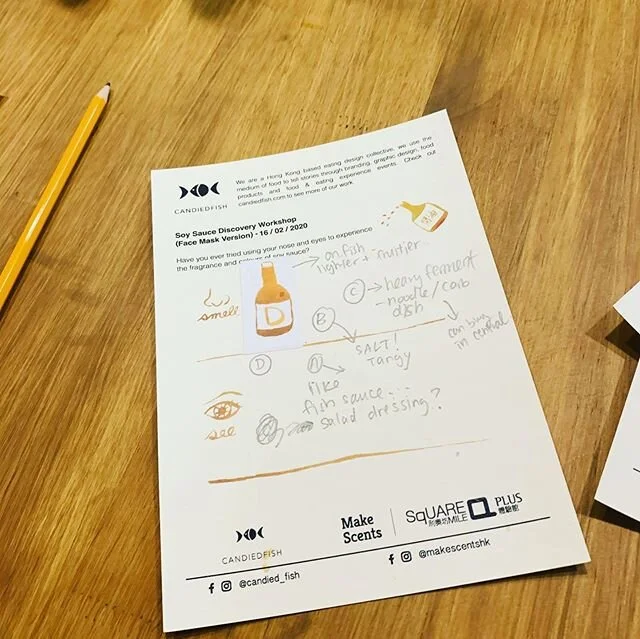 CANDIEDFISH
We are a Hong Kong based eating design collective, we use the
medium of food to tell stories through branding, graphic design, food
products and food & eating experience events. Check out
candiedfish.com to see more of our work
Soy Sauce Discovery Workshop
(Face Mask Version) - 16 / 02 / 2020
Have you ever tried using your nose and eyes to experience
the fragrance and colours of soy sauce?
smell
D
→ on fish
lighter + fruitier
C → heavy ferment
- noodle / carb
dish
can buy
in central
B
SALT!
Tangy
D
A
like
fish sauce...
salad dressing?
see
CANDIEDFISH
@candied_fish
Make
Scents
SqUARE
MILE
PLUS
@makescentshk